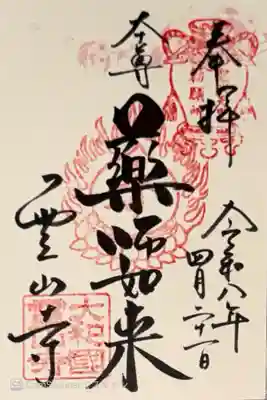 奉拝
令和八年
四月二十一日
本尊
藥師如来
霊山寺
大和國